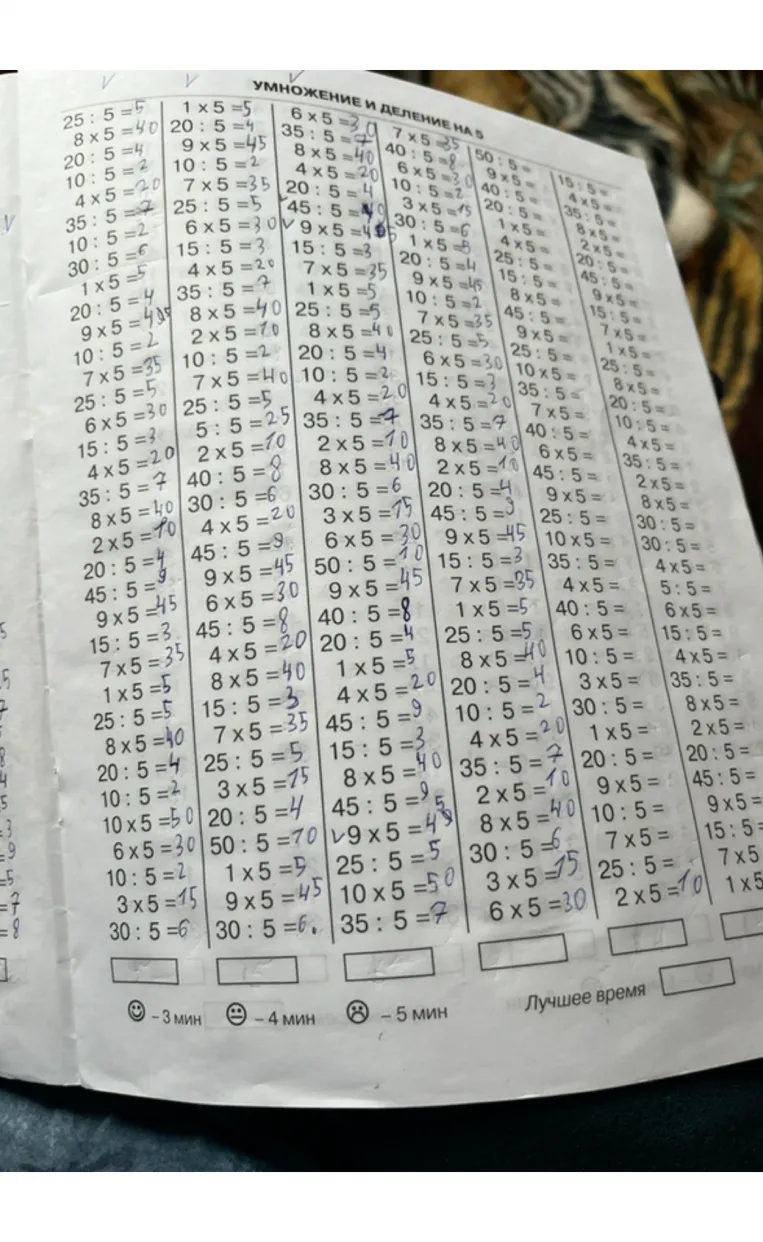 УМНОЖЕНИЕ И ДЕЛЕНИЕ НА 5
25 : 5 =5
8 x 5 =40
20 : 5 =4
10 : 5 =2
4 x 5 =20
35 : 5 =7
10 : 5 =2
30 : 5 =6
1 x 5 =5
20 : 5 =4
9 x 5 =
10 : 5 =2
7 x 5 =35
25 : 5 =5
6 x 5 =30
15 : 5 =3
4 x 5 =20
35 : 5 =7
8 x 5 =40
2 x 5 =10
20 : 5 =4
45 : 5 =9
9 x 5 =45
15 : 5 =3
7 x 5 =35
1 x 5 =5
25 : 5 =5
8 x 5 =40
20 : 5 =4
10 : 5 =2
10 x 5 =50
6 x 5 =30
10 : 5 =2
3 x 5 =15
30 : 5 =6
1 x 5 =5
20 : 5 =4
9 x 5 =45
10 : 5 =2
7 x 5 =35
25 : 5 =5
6 x 5 =30
15 : 5 =3
4 x 5 =20
35 : 5 =7
8 x 5 =40
2 x 5 =10
10 : 5 =2
7 x 5 =40
25 : 5 =5
5 : 5 =25
2 x 5 =10
40 : 5 =8
30 : 5 =6
4 x 5 =20
45 : 5 =9
9 x 5 =45
6 x 5 =30
45 : 5 =8
4 x 5 =20
8 x 5 =40
15 : 5 =3
7 x 5 =35
25 : 5 =5
3 x 5 =15
20 : 5 =4
50 : 5 =10
1 x 5 =5
9 x 5 =45
30 : 5 =6.
6 x 5 =30
35 : 5 =7
8 x 5 =40
4 x 5 =20
20 : 5 =4
45 : 5 =
9 x 5 =
15 : 5 =3
7 x 5 =35
1 x 5 =5
25 : 5 =5
8 x 5 =40
20 : 5 =4
10 : 5 =2
4 x 5 =20
35 : 5 =7
2 x 5 =10
8 x 5 =40
30 : 5 =6
3 x 5 =15
6 x 5 =30
50 : 5 =10
9 x 5 =45
40 : 5 =8
20 : 5 =4
1 x 5 =5
4 x 5 =20
45 : 5 =9
15 : 5 =3
8 x 5 =40
45 : 5 =9
9 x 5 =
25 : 5 =5
10 x 5 =50
35 : 5 =7
7 x 5 =35
40 : 5 =8
6 x 5 =30
10 : 5 =2
3 x 5 =15
30 : 5 =6
1 x 5 =5
20 : 5 =4
9 x 5 =45
10 : 5 =2
7 x 5 =35
25 : 5 =5
6 x 5 =30
15 : 5 =3
4 x 5 =20
35 : 5 =7
8 x 5 =40
2 x 5 =10
20 : 5 =4
45 : 5 =9
9 x 5 =45
15 : 5 =3
7 x 5 =35
1 x 5 =5
25 : 5 =5
8 x 5 =40
20 : 5 =4
10 : 5 =2
4 x 5 =20
35 : 5 =7
2 x 5 =10
8 x 5 =40
30 : 5 =6
3 x 5 =15
6 x 5 =30
50 : 5 =
9 x 5 =
40 : 5 =
20 : 5 =
1 x 5 =
4 x 5 =
25 : 5 =
15 : 5 =
8 x 5 =
45 : 5 =
9 x 5 =
25 : 5 =
10 x 5 =
35 : 5 =
7 x 5 =
40 : 5 =
6 x 5 =
45 : 5 =
9 x 5 =
25 : 5 =
10 x 5 =
35 : 5 =
4 x 5 =
40 : 5 =
6 x 5 =
10 : 5 =
3 x 5 =
30 : 5 =
1 x 5 =
20 : 5 =
9 x 5 =
10 : 5 =
7 x 5 =
25 : 5 =
2 x 5 =10
15 : 5 =
4 x 5 =
35 : 5 =
8 x 5 =
2 x 5 =
20 : 5 =
45 : 5 =
9 x 5 =
15 : 5 =
7 x 5 =
1 x 5 =
25 : 5 =
8 x 5 =
20 : 5 =
10 : 5 =
4 x 5 =
35 : 5 =
2 x 5 =
8 x 5 =
30 : 5 =
30 : 5 =
4 x 5 =
5 : 5 =
6 x 5 =
15 : 5 =
4 x 5 =
35 : 5 =
8 x 5 =
2 x 5 =
20 : 5 =
45 : 5 =
9 x 5 =
15 : 5 =
7 x 5
1 x 5
– 3 мин
– 4 мин
– 5 мин
Лучшее время